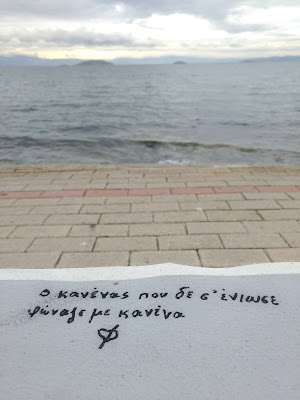 ο κανένας που δε σ' ένιωσε
φώναξε με κανένα